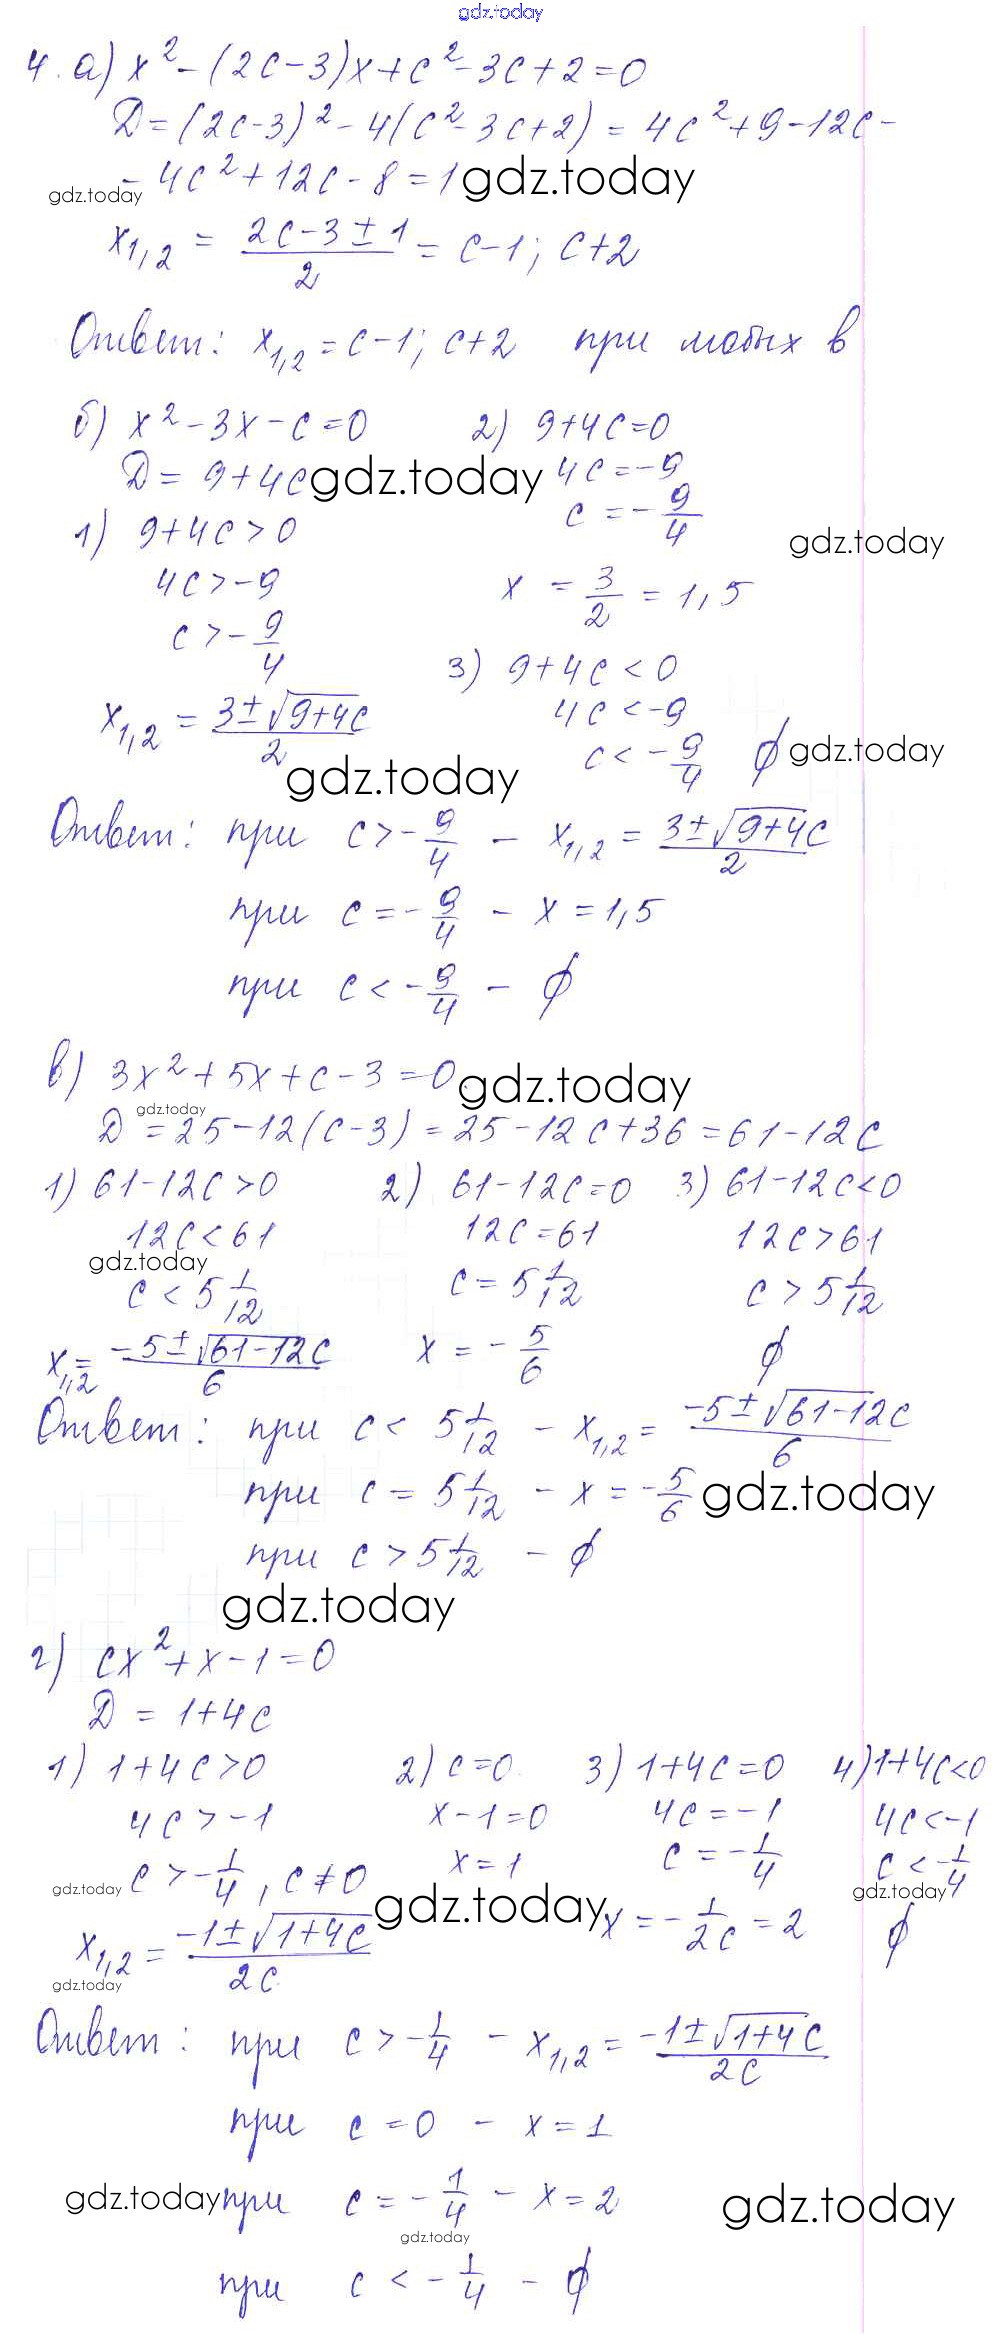 gdz.today
4. а) x² - (2c - 3)x + c² - 3c + 2 = 0
D = (2c - 3)² - 4(c² - 3c + 2) = 4c² + 9 - 12c -
- 4c² + 12c - 8 = 1 gdz.today
gdz.today
x₁,₂ = (2c - 3 ± 1)/2 = c - 1; c + 2
Ответ: x₁,₂ = c - 1; c + 2 при любых в
б) x² - 3x - c = 0
D = 9 + 4c gdz.today
1) 9 + 4c > 0
4c > -9
c > -9/4
x₁,₂ = (3 ± √(9 + 4c))/2
gdz.today
2) 9 + 4c = 0
4c = -9
c = -9/4
gdz.today
x = 3/2 = 1,5
3) 9 + 4c < 0
4c < -9
c < -9/4 ∅ gdz.today
Ответ: при c > -9/4 - x₁,₂ = (3 ± √(9 + 4c))/2
при c = -9/4 - x = 1,5
при c < -9/4 - ∅
в) 3x² + 5x + c - 3 = 0 gdz.today
gdz.today
D = 25 - 12(c - 3) = 25 - 12c + 36 = 61 - 12c
1) 61 - 12c > 0 2) 61 - 12c = 0 3) 61 - 12c < 0
12c < 61 12c = 61 12c > 61
gdz.today
c < 5 1/12 c = 5 1/12 c > 5 1/12
x₁,₂ = (-5 ± √(61 - 12c))/6 x = -5/6 ∅
Ответ: при c < 5 1/12 - x₁,₂ = (-5 ± √(61 - 12c))/6
при c = 5 1/12 - x = -5/6 gdz.today
при c > 5 1/12 - ∅
gdz.today
г) cx² + x - 1 = 0
D = 1 + 4c
1) 1 + 4c > 0 2) c = 0 3) 1 + 4c = 0 4) 1 + 4c < 0
4c > -1 x - 1 = 0 4c = -1 4c < -1
c > -1/4, c ≠ 0 x = 1 c = -1/4 c < -1/4
gdz.today gdz.today gdz.today
x₁,₂ = (-1 ± √(1 + 4c))/2c x = -1/2c = 2 ∅
gdz.today
Ответ: при c > -1/4 - x₁,₂ = (-1 ± √(1 + 4c))/2c
при c = 0 - x = 1
gdz.today при c = -1/4 - x = 2 gdz.today
gdz.today
при c < -1/4 - ∅